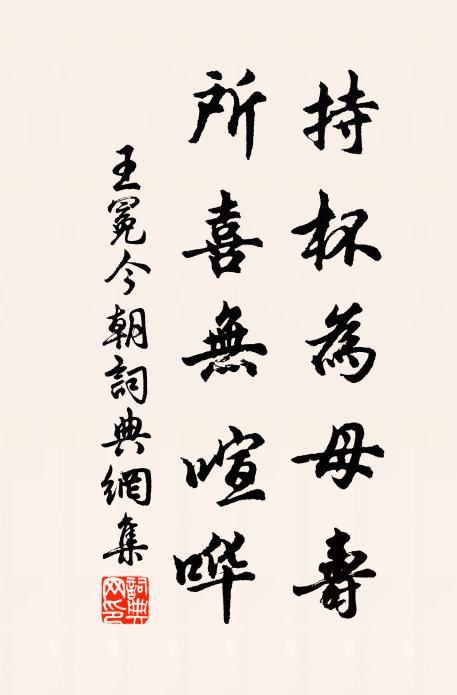 持杯為母壽
所喜無喧哗
王冕今朝詞典網集
詞典
网印